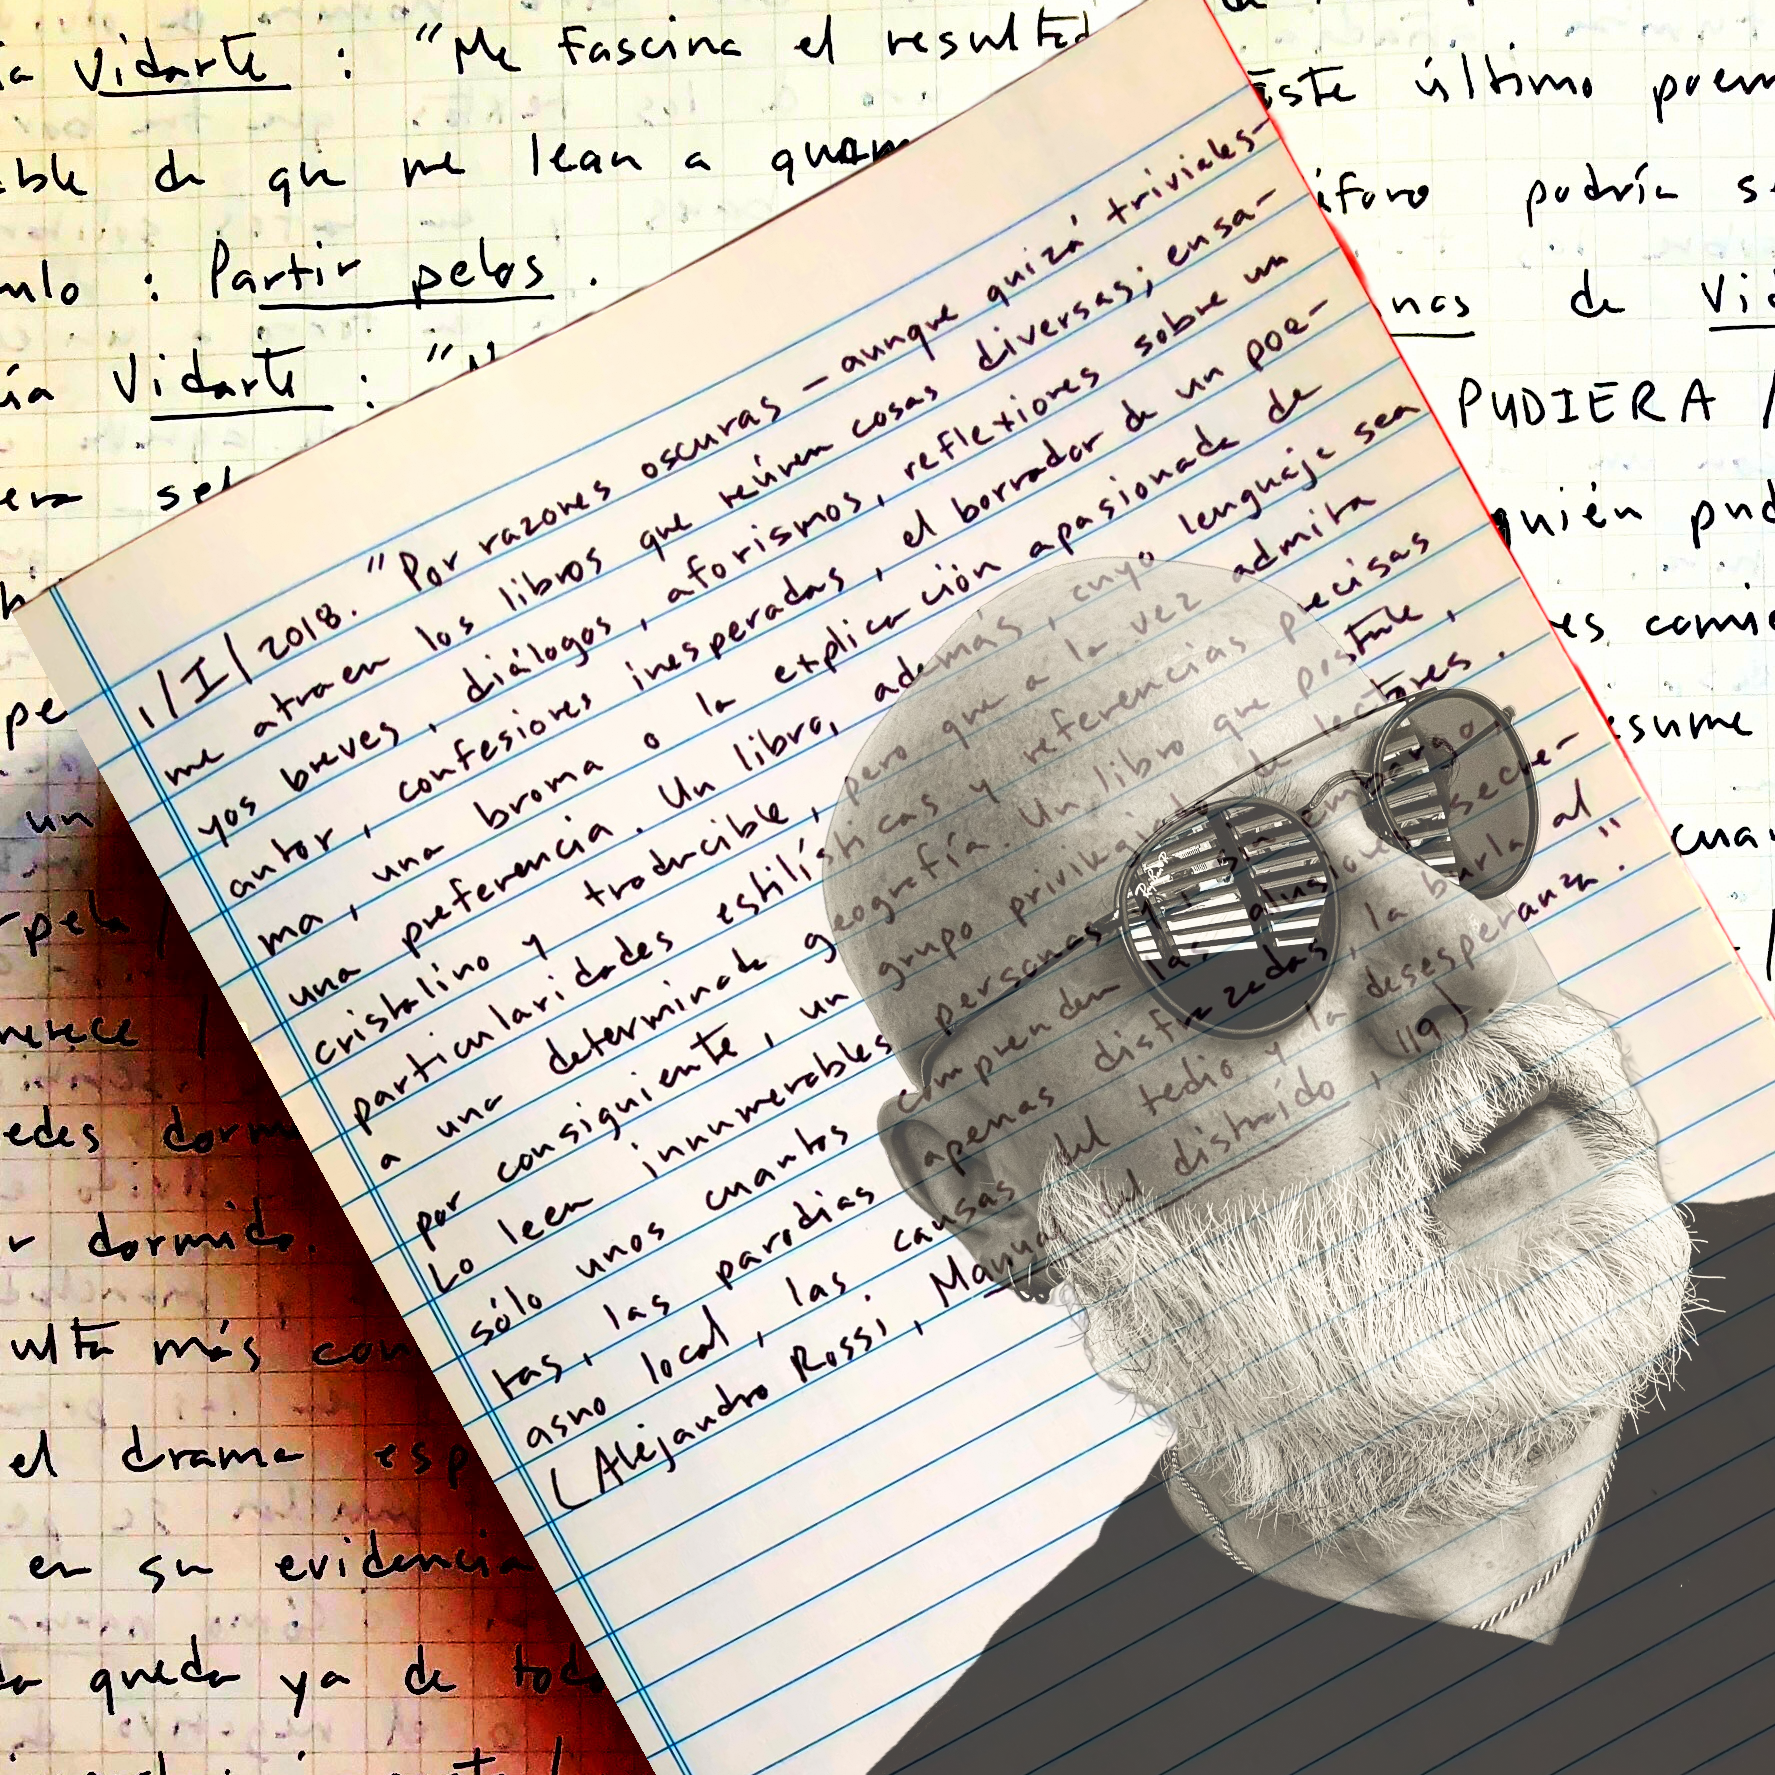 Vidarte : "Me fascina el
de que me lean a
: Partir pelos.
Vidarte :
un
dormido.
más
el drama
en su evidencia
queda ya de
1/I/2018. "Por razones oscuras – aunque quizá triviales –
me atraen los libros que reúnen cosas diversas; ensa-
yos breves, diálogos, aforismos, reflexiones sobre un
autor, confesiones inesperadas, el borrador de un poe-
ma, una broma o la explicación apasionada de
una preferencia. Un libro, además, cuyo lenguaje sea
cristalino y traducible, pero que a la vez admita
particularidades estilísticas y referencias precisas
a una determinada geografía. Un libro que postule,
por consiguiente, un grupo privilegiado de lectores.
Lo leen innumerables personas y, sin embargo,
sólo unos cuantos comprenden las alusiones secre-
tas, las parodias apenas disfrazadas, la burla al
asno local, las causas del tedio y la desesperanza."
(Alejandro Rossi, Manual del distraído, 119).
este último
podría
de
PUDIERA /
quién